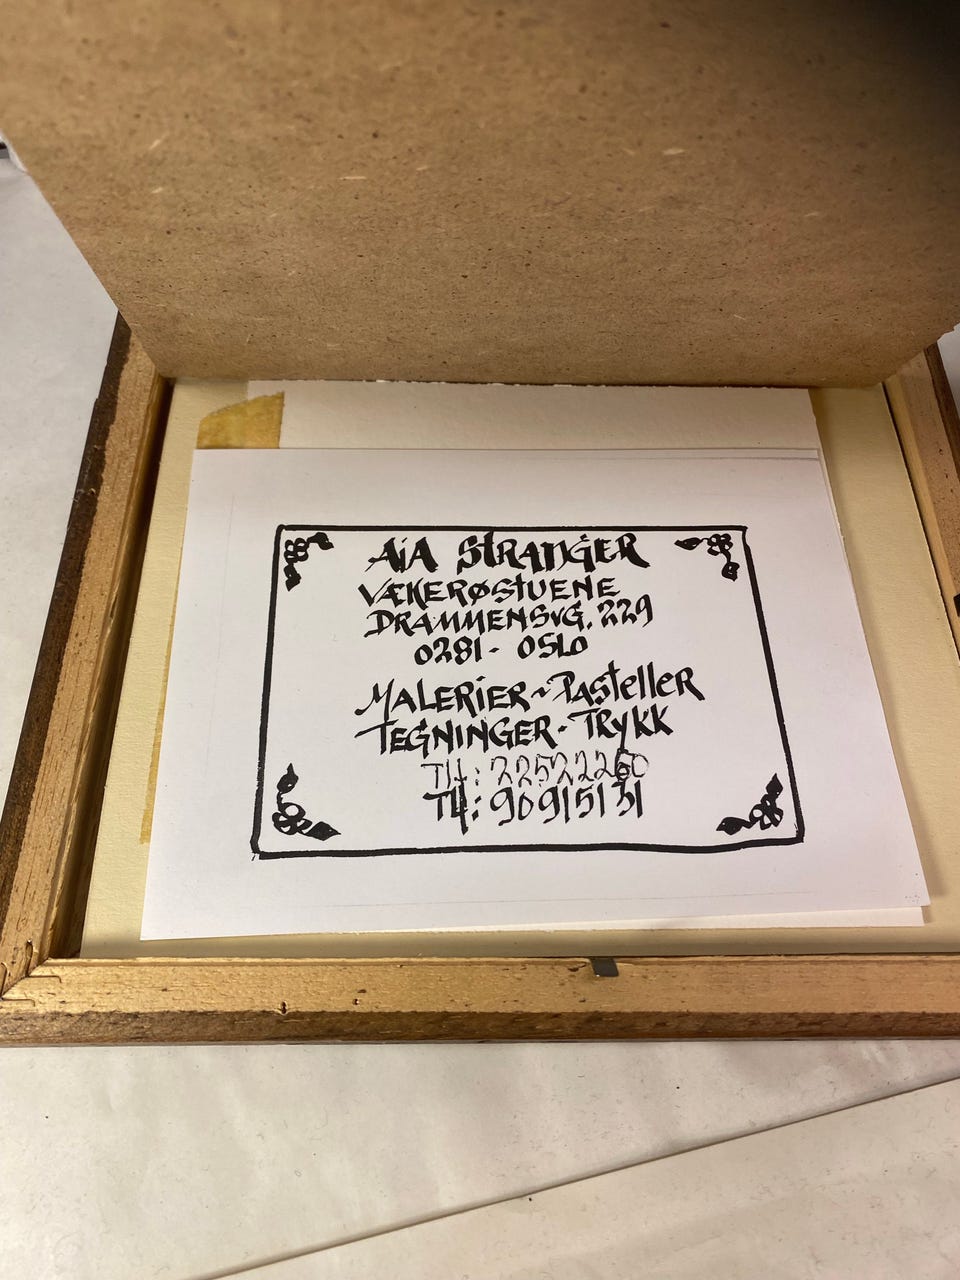 AiA STRANGER
VÆKERØSTUENE
DRAMMENSVG. 229
0281 - OSLO
MALERIER ~ PASTELLER
TEGNINGER - TRYKK
Tlf: 22522260
Tlf: 90915131